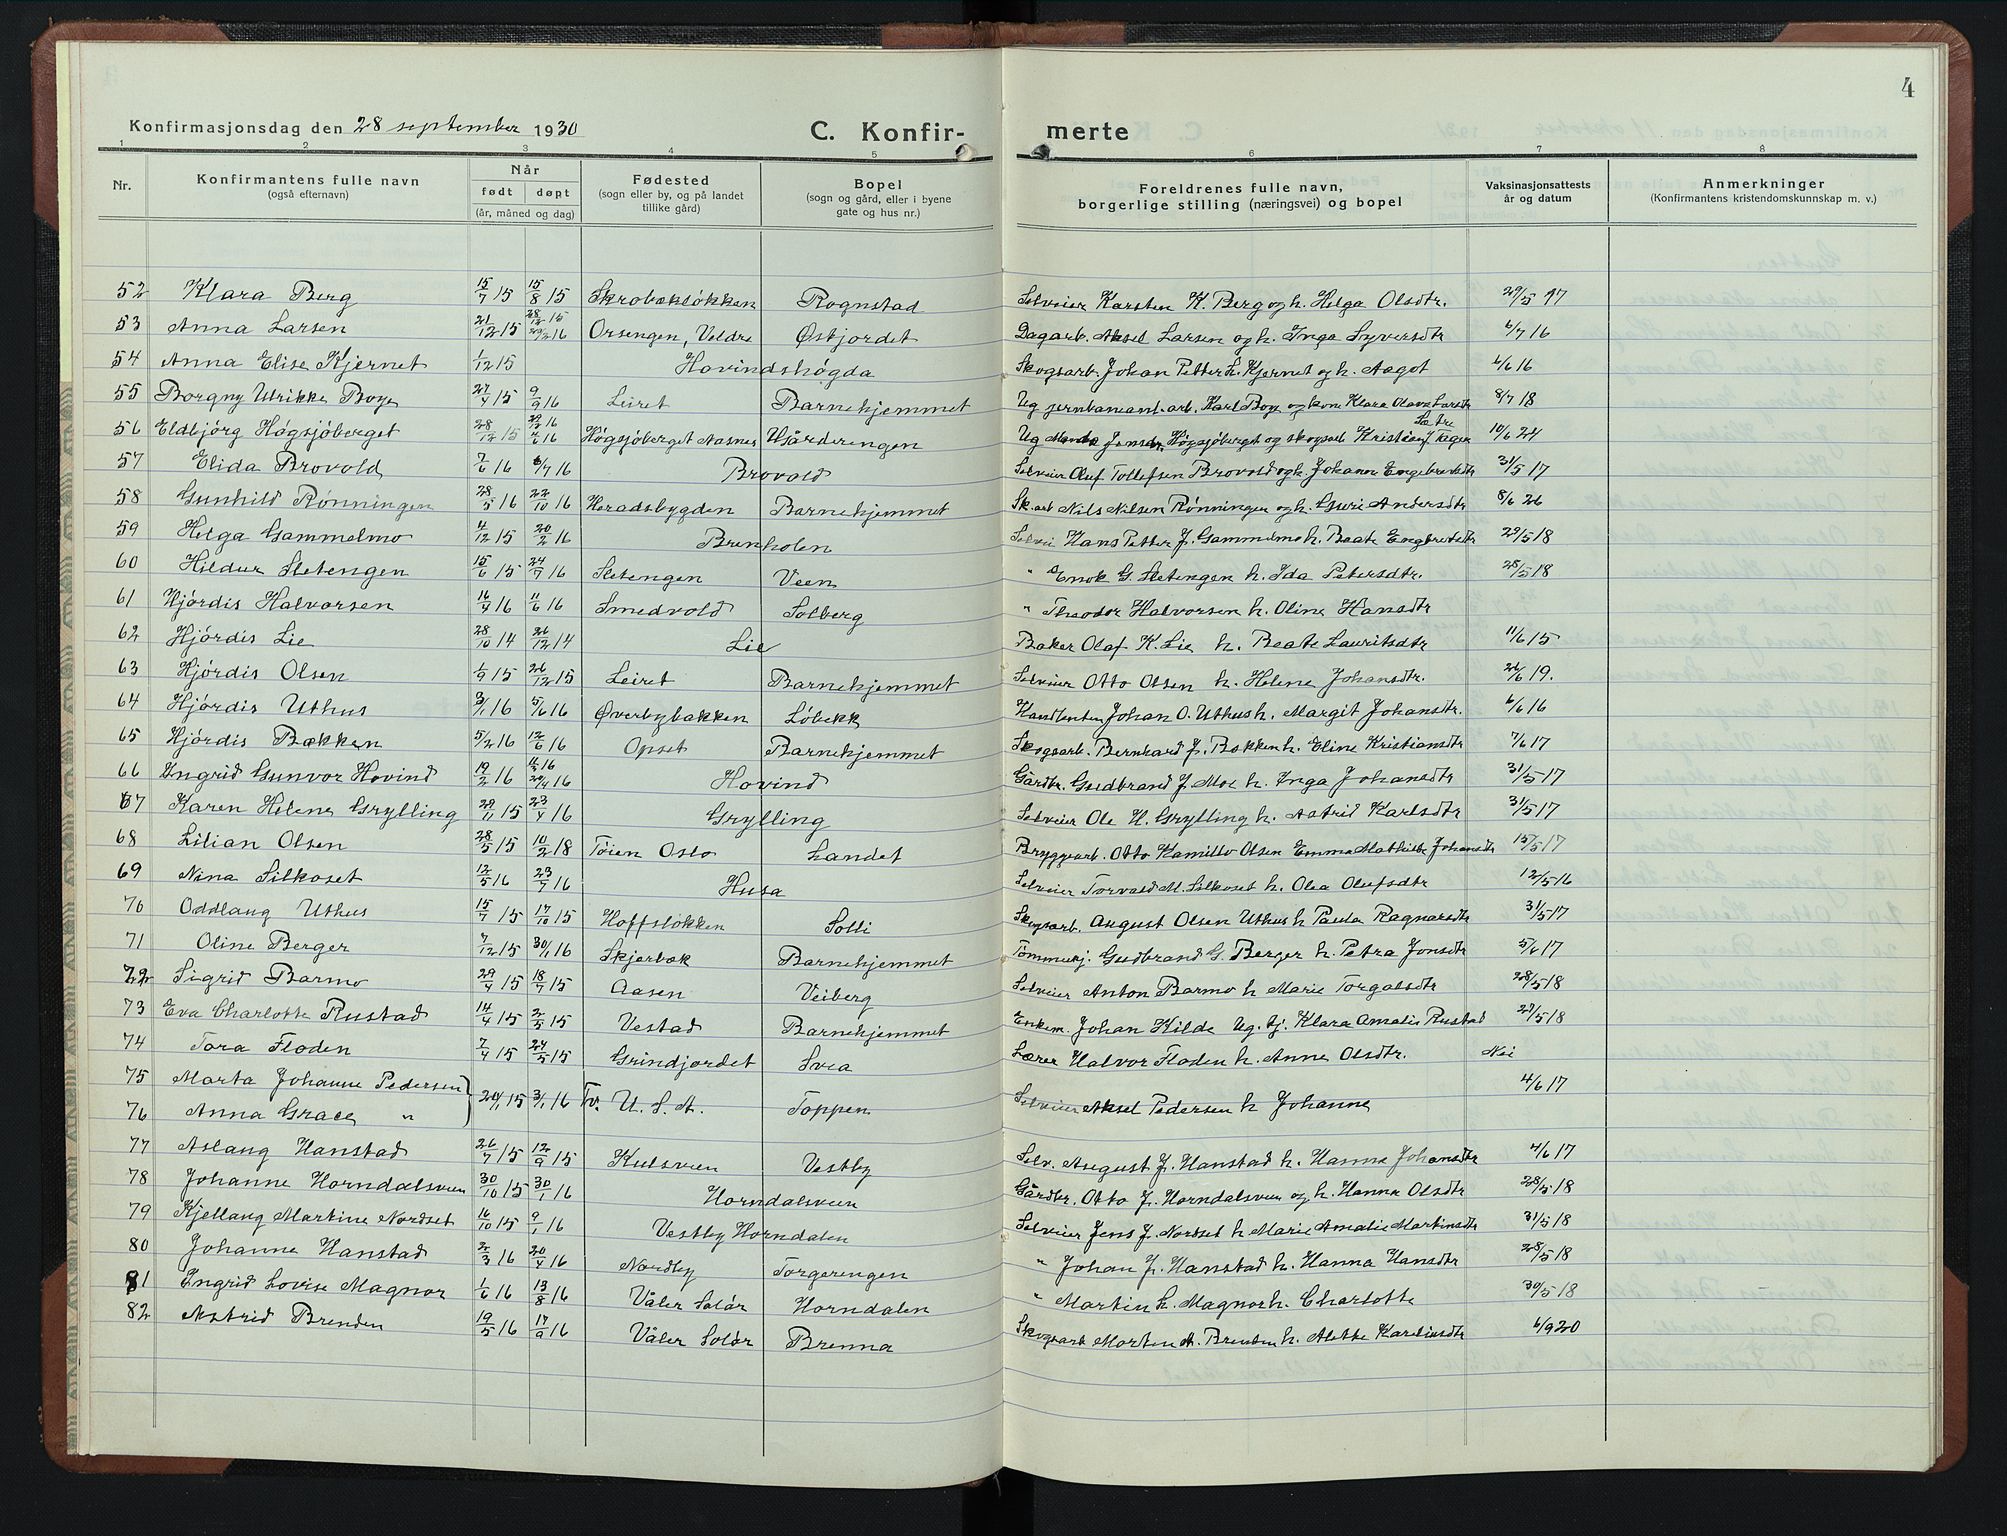 4
Konfirmasjonsdag den 28 september 1930 C. Konfir- merte
1 2 3 4 5 6 7 8
Nr. Konfirmantens fulle navn (også efternavn) Når født døpt (år, måned og dag) Fødested (sogn eller by, og på landet tillike gård) Bopel (sogn og gård, eller i byene gate og hus nr.) Foreldrenes fulle navn, borgerlige stilling (næringsvei) og bopel Vaksinasjonsattests år og datum Anmerkninger (Konfirmantens kristendomskunnskap m. v.)
52 Klara Berg 15/7 15 15/8 15 Skrobæksløkken Rognstad Selveier Karsten K. Berg og h. Helga Olsdtr. 29/5 97
53 Anna Larsen 21/12 15 28/12 15 29/2 16 Orsengen, Veldre Østjordet Dagarb. Aksel Larsen og h. Inga Syversdtr 6/7 16
54 Anna Elise Kjernet 1/12 15 Hovindshøgda Skogsarb. Johan Petter L. Kjernet og h. Aagot 4/6 16
55 Borgny Ulrikke Boye 27/4 15 9/9 16 Leiret Barnehjemmet Ug jernbaneant.arb. Karl Boye og kone Klara Olava Larsdtr 8/7 18
56 Eldbjörg Högsjöberget 28/12 15 4/6 16 Høgsjøberget Aasnes Gjärderengen Ug Jensdtr Högsjöberget og skogsarb Kristian J Tægen Sætre 10/6 24
57 Elida Brovold 7/6 16 6/7 16 Brovold Selveier Oluf Tollefsen Brovold og h. Johanne Engebretsdtr 31/5 17
58 Gunhild Rønningen 28/5 16 22/10 16 Heradsbygden Barnehjemmet Sk.arb Nils Nilsen Rønningen og h. Guri Andersdtr 8/6 26
59 Helga Gammelmo 4/12 15 20/2 16 Brenholen Selvei Hans Petter J. Gammelmo h. Beate Engbretsdtr 29/5 18
60 Hildur Sletengen 15/6 15 24/9 16 Sletengen Veen " Enok G. Sletengen h. Ida Petersdtr. 28/5 18
61 Hjördis Halvorsen 16/4 16 11/6 16 Smedvold Solberg " Theodor Halvorsen h. Oline Hansdtr
62 Hjördis Lie 28/10 14 26/12 14 Lie Baker Olaf K. Lie h. Beate Lauritsdtr 11/6 15
63 Hjördis Olsen 1/9 15 26/12 15 Leiret Barnehjemmet Selveier Otto Olsen h. Helene Johansdtr. 26/6 19.
64 Hjördis Uthus 3/1 16 5/6 16 Øverbybakken Løbekk Johan O. Uthus h. Margit Johansdtr. 6/6 16
65 Hjördis Bækken 5/2 16 12/6 16 Opset Barnehjemmet Skogsarb. Bernhard J. Bækken h. Eline Kristiansdtr 7/6 17
66 Ingrid Gunvor Hovind 19/2 16 29/4 16 Hovind Gårdbr. Gudbrand J. Moe h. Inga Johansdtr 31/5 17
67 Karen Helene Grylling 29/11 15 23/4 16 Grylling Selveier Ole H. Grylling h. Astrid Karlsdtr 31/5 17
68 Lilian Olsen 28/5 15 10/2 18 Töien Oslo Landet Bryggearb. Otto Kamillo Olsen Emma Mathilde Johansdtr 15/5 17
69 Nina Silkoset 12/5 16 23/7 16 Husa Selveier Torvald M. Silkoset h. Olea Olufsdtr 12/5 16
70 Oddlaug Uthus 15/7 15 17/10 15 Hoffsløkken Solli Skogsarb. August Olsen Uthus h Paula Ragnarsdtr 31/5 17
71 Oline Berger 7/12 15 30/1 16 Skjerbæk Barnehjemmet Tømmerkj. Gudbrand G. Berger h. Petra Jonsdtr 5/6 17
72 Sigrid Barmo 29/4 15 18/7 15 Aasen Veiberg Selveier Anton Barmo h Marie Torgalsdtr 28/5 18
73 Eva Charlotte Rustad 14/4 15 2/5 15 Vestad Barnehjemmet Enkem. Johan Kilde Ug. tj. Klara Amalie Rustad 23/5 18
74 Tora Floden 7/4 15 24/5 15 Grindjordet Svea Lærer Halvor Floden h. Anne Olsdtr. Nei
75 Marta Johanne Pedersen 4/6 17
76 Anna Grace " 20/1 15 3/1 16 Tv. U. S. A. Toppen Selveier Aksel Pedersen h Johanne
77 Aslaug Hanstad 26/7 15 12/9 15 Kulsveen Vestby Selv. August J. Hanstad h. Hanna Johansdtr 4/6 17
78 Johanne Horndalsveen 30/10 15 30/1 16 Horndalsveen Gårdbr. Otto J. Horndalsveen og h. Hanna Olsdtr 28/5 18
79 Kjellaug Martine Nordset 16/10 15 9/1 16 Vestby Horndalen Selveier Jens J. Nordset h Marie Amalie Martinsdtr 31/5 18
80 Johanne Hanstad 2/3 16 20/4 16 Nordby Torgerengen " Johan J. Hanstad h. Hanna Hansdtr 28/5 18
81 Ingrid Lovise Magnor 1/6 16 13/8 16 Våler Solör Horndalen " Martin L. Magnor h. Charlotte 30/5 18
82 Astrid Brenden 19/5 16 17/9 16 Våler Solör Brenna Skogsarb Morten A. Brenden h. Alette Karelinsdtr 6/9 20